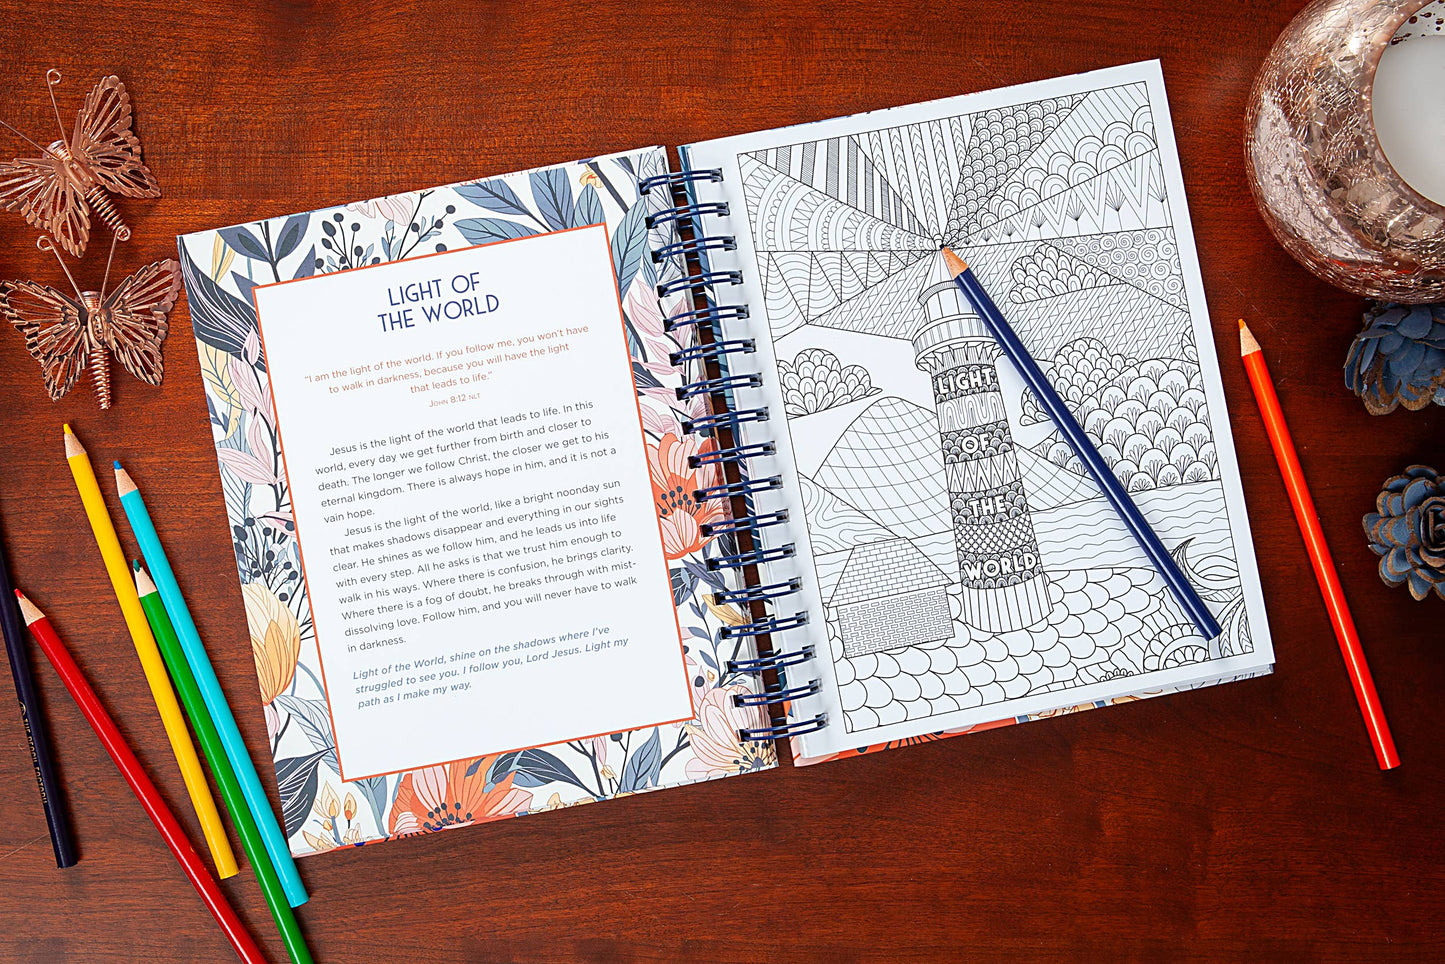 LIGHT OF
THE WORLD
“I am the light of the world. If you follow me, you won’t have
to walk in darkness, because you will have the light
that leads to life.”
John 8:12 NLT
Jesus is the light of the world that leads to life. In this
world, every day we get further from birth and closer to
death. The longer we follow Christ, the closer we get to his
eternal kingdom. There is always hope in him, and it is not a
vain hope.
Jesus is the light of the world, like a bright noonday sun
that makes shadows disappear and everything in our sights
clear. He shines as we follow him, and he leads us into life
with every step. All he asks is that we trust him enough to
walk in his ways. Where there is confusion, he brings clarity.
Where there is a fog of doubt, he breaks through with mist-
dissolving love. Follow him, and you will never have to walk
in darkness.
Light of the World, shine on the shadows where I’ve
struggled to see you. I follow you, Lord Jesus. Light my
path as I make my way.
LIGHT
OF
THE
WORLD